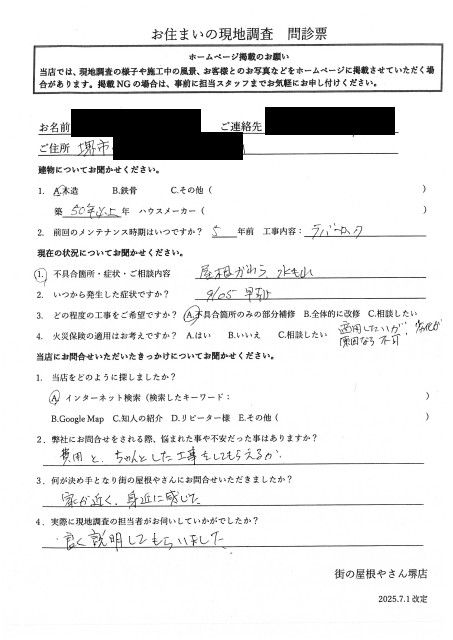 お住まいの現地調査 問診票
ホームページ掲載のお願い
当店では、現地調査の様子や施工中の風景、お客様とのお写真などをホームページに掲載させていただく場
合があります。掲載NGの場合は、事前に担当スタッフまでお気軽にお申し付けください。
お名前 ご連絡先
ご住所 堺市
建物についてお聞かせください。
1. A.木造 B.鉄骨 C.その他( )
築 50年以上 年 ハウスメーカー(
2. 前回のメンテナンス時期はいつですか? 5 年前 工事内容: ラバーロック
現在の状況についてお聞かせください。
1. 不具合箇所・症状・ご相談内容 屋根かわら、水もれ
2. いつから発生した症状ですか? 9/05 早朝
3. どの程度の工事をご希望ですか? A.不具合箇所のみの部分補修 B.全体的に改修 C.相談したい
4. 火災保険の適用はお考えですか? A.はい B.いいえ C.相談したい 適用したいが、劣化が
原因なら不可
当店にお問合せいただいたきっかけについてお聞かせください。
1. 当店をどのように探しましたか?
A インターネット検索(検索したキーワード: )
B.Google Map C.知人の紹介 D.リピーター様 E.その他( )
2. 弊社にお問合せをされる際、悩まれた事や不安だった事はありますか?
費用と、ちゃんとした工事をしてもらえるか
3. 何が決め手となり街の屋根やさんにお問合せいただきましたか?
家が近く、身近に感じた
4. 実際に現地調査の担当者がお伺いしていかがでしたか?
・良く説明してもらいました
街の屋根やさん堺店
2025.7.1 改定